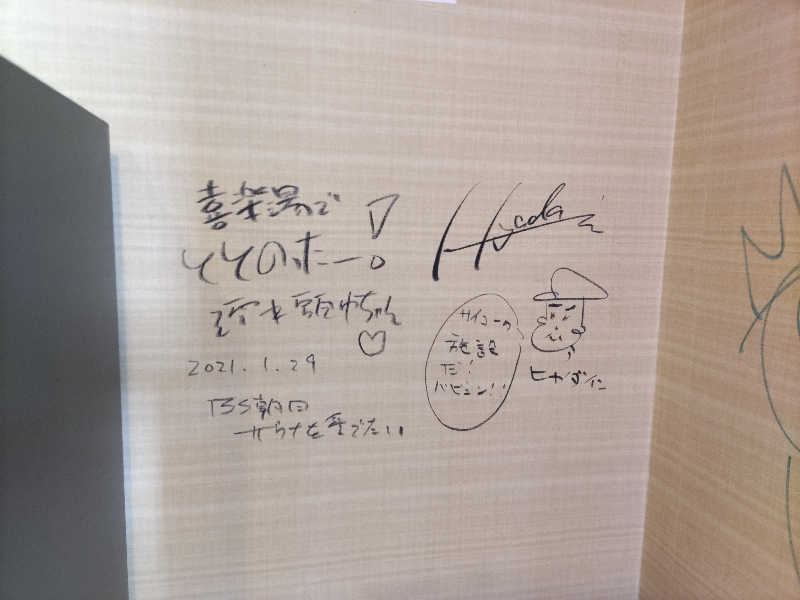 喜楽湯で
ととのったー!
2021.1.29
BS朝日
サウナを愛でたい
サイコーの
施設
だ!
バビュン!!
ヒャダイン